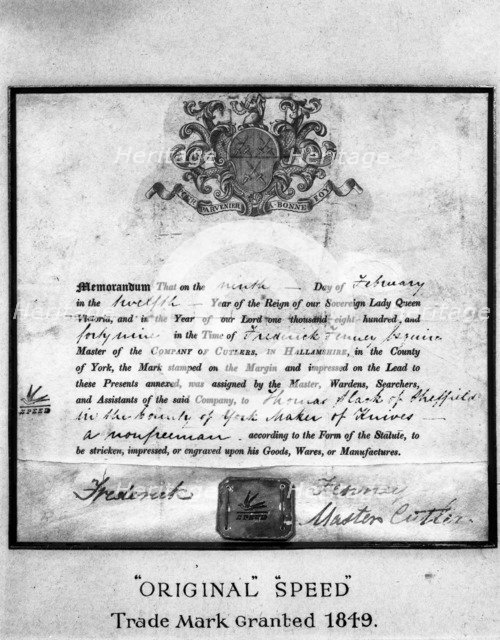 POUR PARVENIR A BONNE FOY
Memorandum That on the ninth Day of February
in the twelfth Year of the Reign of our Sovereign Lady Queen
Victoria, and in the Year of our Lord one thousand eight hundred, and
forty nine in the Time of Frederick Fenney Esquire
Master of the COMPANY OF CUTLERS, IN HALLAMSHIRE, in the County
of York, the Mark stamped on the Margin and impressed on the Lead to
these Presents annexed, was assigned by the Master, Wardens, Searchers,
and Assistants of the said Company, to Thomas Slack of Sheffield
in the County of York Maker of Knives
a nonfreeman, according to the Form of the Statute, to
be stricken, impressed, or engraved upon his Goods, Wares, or Manufactures.
SPEED
Frederick Fenney
Master Cutler.
SPEED
"ORIGINAL" "SPEED"
Trade Mark Granted 1849.
Heritage
Heritage
Heritage